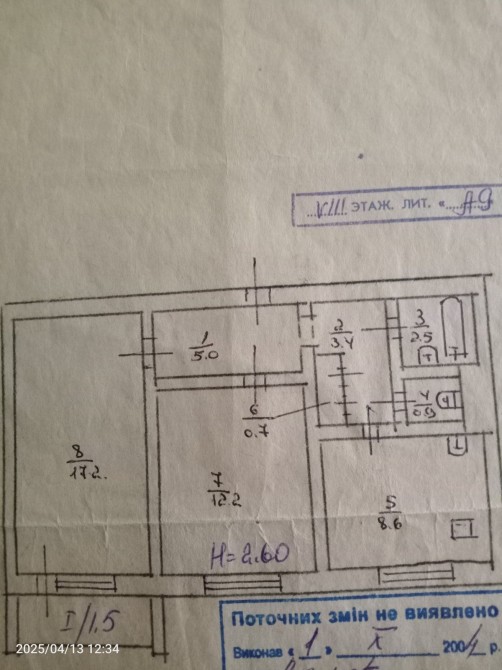 VIII ЭТАЖ. ЛИТ. «А9
1
5.0
2
3.4
3
2.5
4
0.9
6
0.7
8
17.2.
7
12.2
5
8.6
H=2.60
I/1.5
Поточних змін не виявлено
Виконав «1» X 2004 р.
2025/04/13 12:34